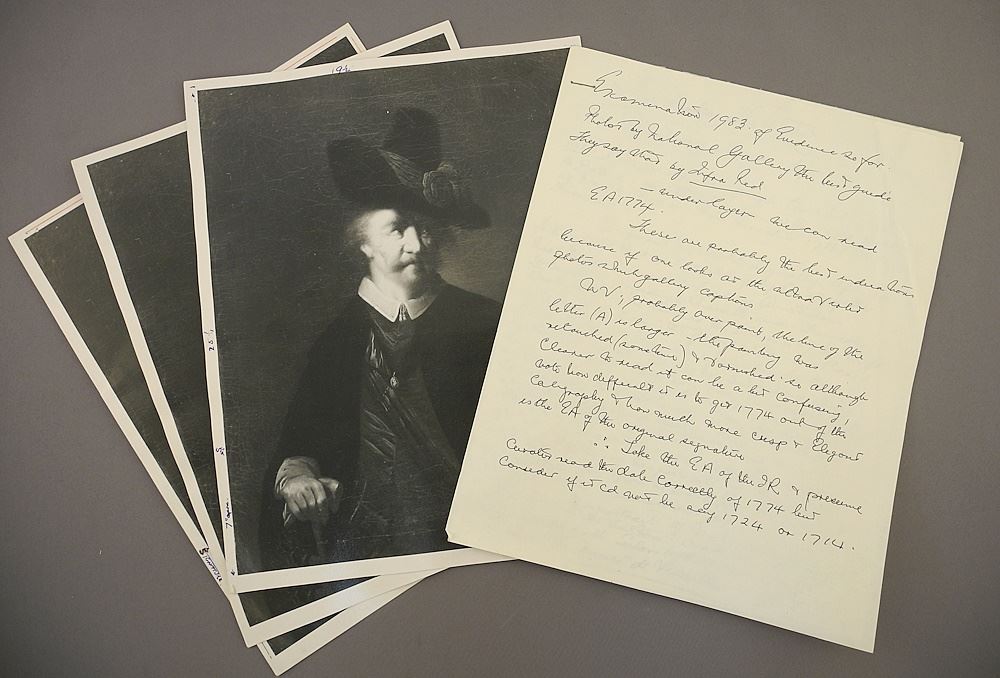 Examination 1983. of Evidence so far.
Photos by National Gallery the best guide
They say that by Infra Red
– under layer we can read
EA 1774.
These are probably the best indications
because if one looks at the ultra Violet
photos which gallery captions.
UV, probably over paint, the line of the
letter (A) is larger – the painting was
retouched (sometime) & varnished so although
cleaner to read it can be a bit confusing,
note how difficult it is to get 1774 out of the
caligraphy & how much more crisp & elegant
is the EA of the original signature
∴ Take the EA of the IR & presume
Curator read the date correctly of 1774 but
consider if it cd not be say 1724 or 1714.